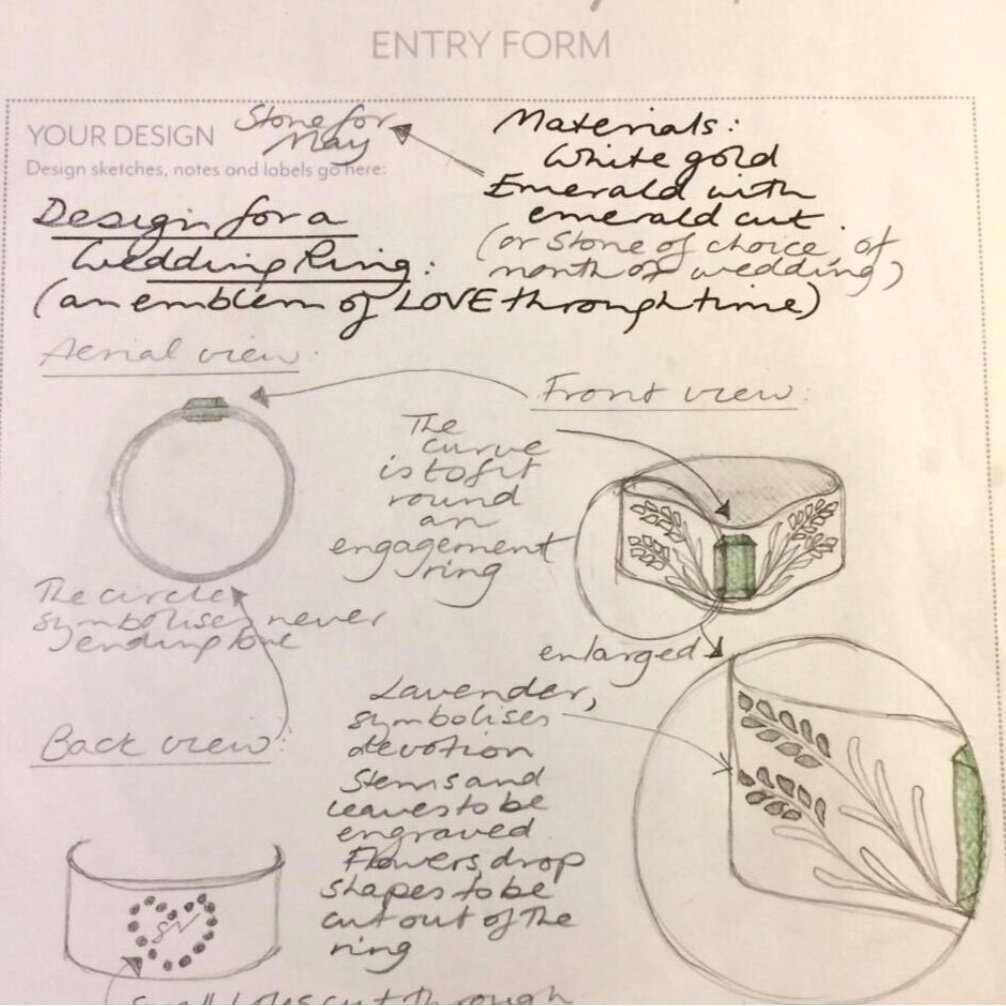 ENTRY FORM
YOUR DESIGN
Design sketches, notes and labels go here:
Stone for
May
Materials:
White gold
Emerald with
emerald cut.
(or stone of choice of
month of wedding)
Design for a
Wedding Ring:
(an emblem of LOVE through time)
Aerial view:
Front view:
The
curve
is to fit
round
an
engagement
ring
The circle
symbolises never
ending love
enlarged
Back view:
Lavender,
symbolises
devotion
Stems and
leaves to be
engraved
Flowers, drop
shapes to be
cut out of the
ring
Small holes cut through